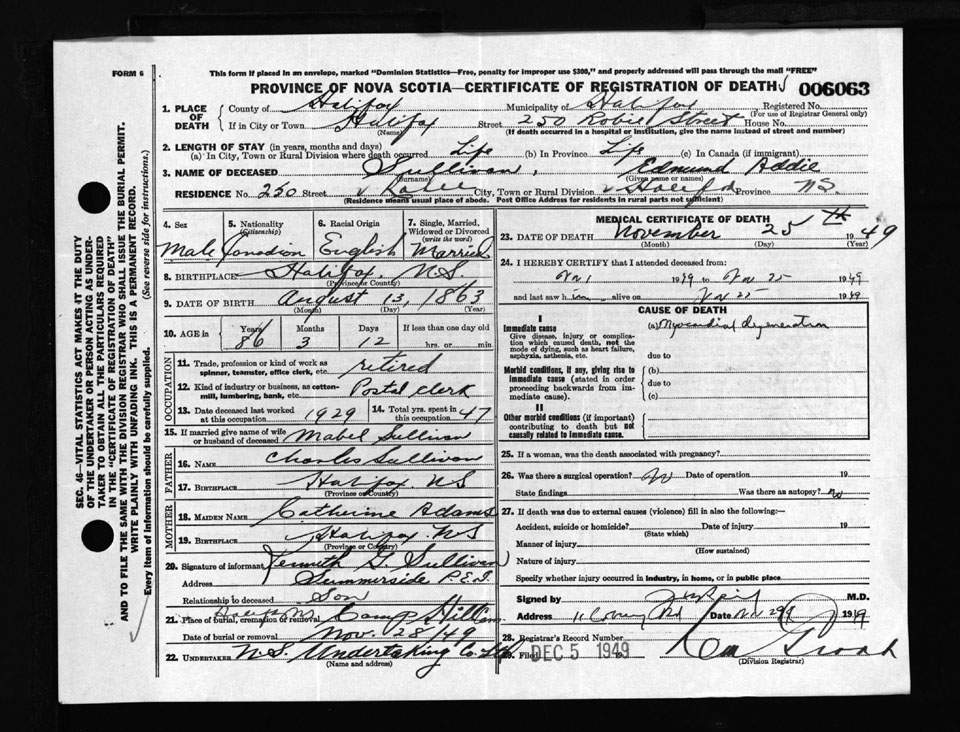 FORM 6
This form if placed in an envelope, marked "Dominion Statistics—Free, penalty for improper use $300," and properly addressed will pass through the mail "FREE"
PROVINCE OF NOVA SCOTIA—CERTIFICATE OF REGISTRATION OF DEATH
006063
1. PLACE OF DEATH
County of Halifax Municipality of Halifax Registered No.
(For use of Registrar General only)
If in City or Town Halifax Street 250 Robie Street House No.
(Name) (If death occurred in a hospital or institution, give the name instead of street and number)
2. LENGTH OF STAY (in years, months and days)
(a) In City, Town or Rural Division where death occurred Life (b) In Province Life (c) In Canada (if immigrant)
3. NAME OF DECEASED Sullivan, Edmund Addie
(Surname) (Given name or names)
RESIDENCE No. 250 Street Robie City, Town or Rural Division Halifax NS.
(Residence means usual place of abode. Post Office Address for residents in rural parts not sufficient)
4. Sex Male
5. Nationality (Citizenship) Canadian
6. Racial Origin English
7. Single, Married, Widowed or Divorced (write the word) Married
8. BIRTHPLACE Halifax, N.S.
(Province or Country)
9. DATE OF BIRTH August 13, 1863
(Month) (Day) (Year)
10. AGE in Years 86 Months 3 Days 12 If less than one day old hrs. or min.
OCCUPATION
11. Trade, profession or kind of work as spinner, teamster, office clerk, etc. retired
12. Kind of industry or business, as cotton-mill, lumbering, bank, etc. Postal Clerk
13. Date deceased last worked at this occupation 1929
14. Total yrs. spent in this occupation 47
15. If married give name of wife or husband of deceased Mabel Sullivan
FATHER
16. NAME Charles Sullivan
17. BIRTHPLACE Halifax, NS
(Province or Country)
MOTHER
18. MAIDEN NAME Catherine Adams
19. BIRTHPLACE Halifax, NS
(Province or Country)
20. Signature of informant Kenneth G. Sullivan
Address Summerside P.E.I.
Relationship to deceased Son
21. Place of burial, cremation or removal Camp Hill Cem.
Date of burial or removal Nov. 28/49
22. UNDERTAKER N.S. Undertaking Co. Ltd
(Name and address)
MEDICAL CERTIFICATE OF DEATH
23. DATE OF DEATH November 25th 1949
(Month) (Day) (Year)
24. I HEREBY CERTIFY that I attended deceased from:
Nov 1 1949 to Nov 25 1949
and last saw him alive on Nov 25 1949
CAUSE OF DEATH
I
Immediate cause
Give disease, injury or complication which caused death, not the mode of dying, such as heart failure, asphyxia, asthenia, etc.
(a) Myocardial degeneration
due to
Morbid conditions, if any, giving rise to immediate cause (stated in order proceeding backwards from immediate cause).
(b)
due to
(c)
II
Other morbid conditions (if important) contributing to death but not causally related to immediate cause.
25. If a woman, was the death associated with pregnancy?
26. Was there a surgical operation? No Date of operation 19
State findings Was there autopsy? no
27. If death was due to external causes (violence) fill in also the following:
Accident, suicide or homicide? Date of injury 19
(State which)
Manner of injury
(How sustained)
Nature of injury
Specify whether injury occurred in industry, in home, or in public place
Signed by M.D.
Address Date Nov 29 1949
28. Registrar's Record Number
29. Filed DEC 5 1949 19
(Division Registrar)
SEC. 46—VITAL STATISTICS ACT MAKES IT THE DUTY
OF THE UNDERTAKER OR PERSON ACTING AS UNDER-
TAKER TO OBTAIN ALL THE PARTICULARS REQUIRED
IN THE "CERTIFICATE OF REGISTRATION OF DEATH"
AND TO FILE THE SAME WITH THE DIVISION REGISTRAR WHO SHALL ISSUE THE BURIAL PERMIT.
WRITE PLAINLY WITH UNFADING INK. THIS IS A PERMANENT RECORD.
Every item of information should be carefully supplied. (See reverse side for instructions.)